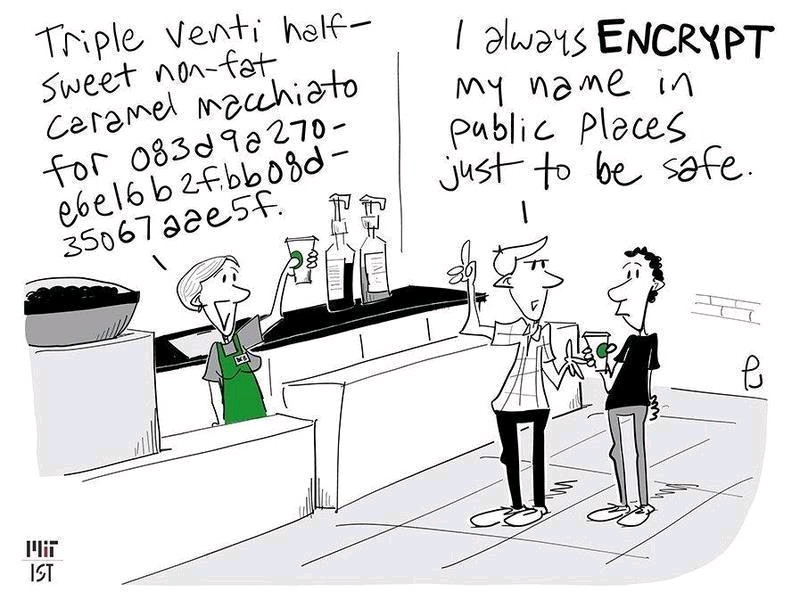 Triple Venti half-
sweet non-fat
caramel macchiato
for 083d9a270-
e6e16b2fbb08d-
35067aae5f.
I always ENCRYPT
my name in
public places
just to be safe.
MIT
IST